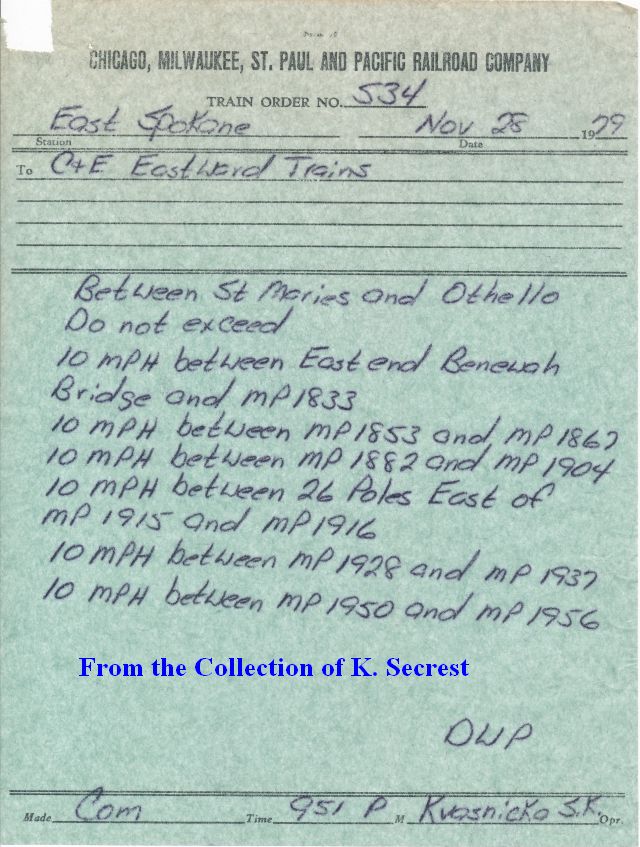 CHICAGO, MILWAUKEE, ST. PAUL AND PACIFIC RAILROAD COMPANY
TRAIN ORDER NO. 534
East Spokane Nov 28 1979
Station Date
To C+E Eastward Trains
Between St Maries and Othello
Do not exceed
10 MPH between East end Benewah
Bridge and MP 1833
10 MPH between MP 1853 and MP 1867
10 MPH between MP 1882 and MP 1904
10 MPH between 26 Poles East of
MP 1915 and MP 1916
10 MPH between MP 1928 and MP 1937
10 MPH between MP 1950 and MP 1956
From the Collection of K. Secrest
DWP
Made Com Time 951 P M Kvasnicka S.K. Opr.